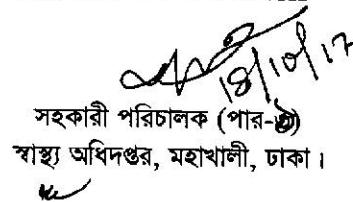 18/10/17
সহকারী পরিচালক (পার-২)
স্বাস্থ্য অধিদপ্তর, মহাখালী, ঢাকা।